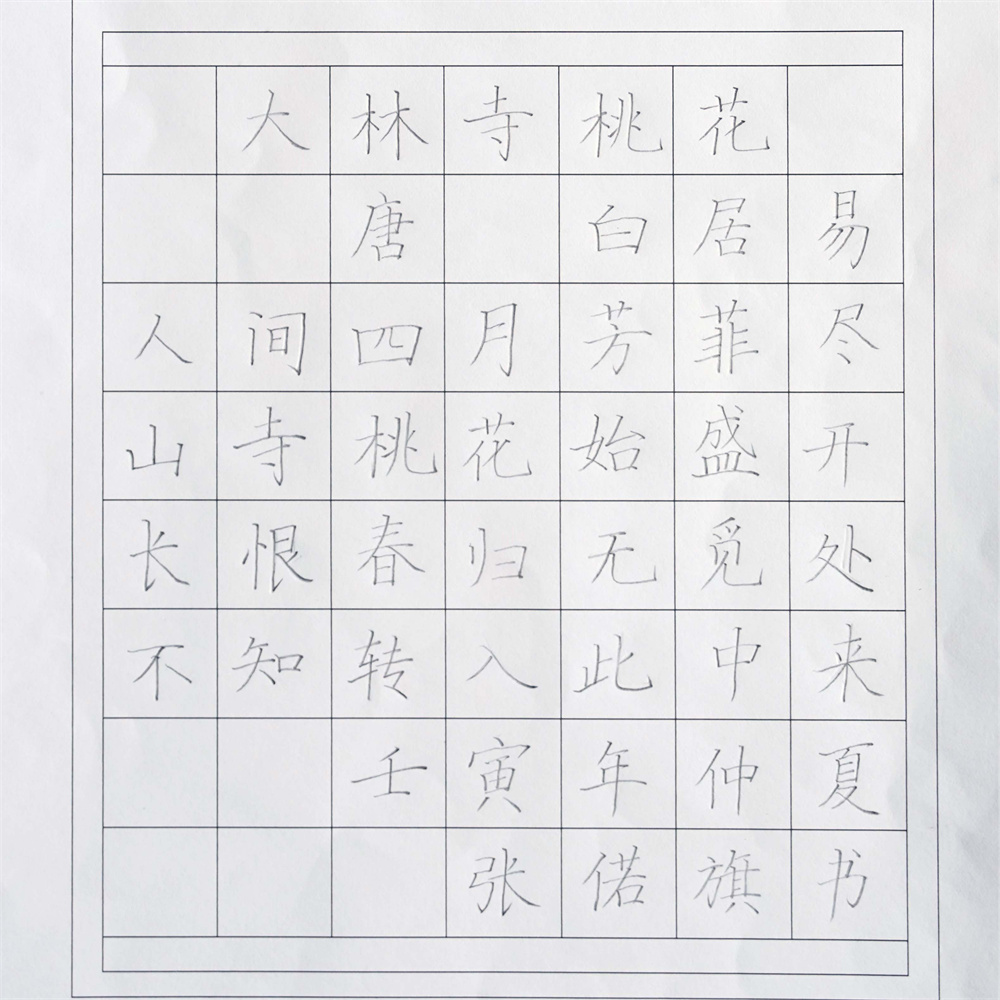 大林寺桃花
唐 白居易
人间四月芳菲尽
山寺桃花始盛开
长恨春归无觅处
不知转入此中来
壬寅年仲夏
张偌旗书